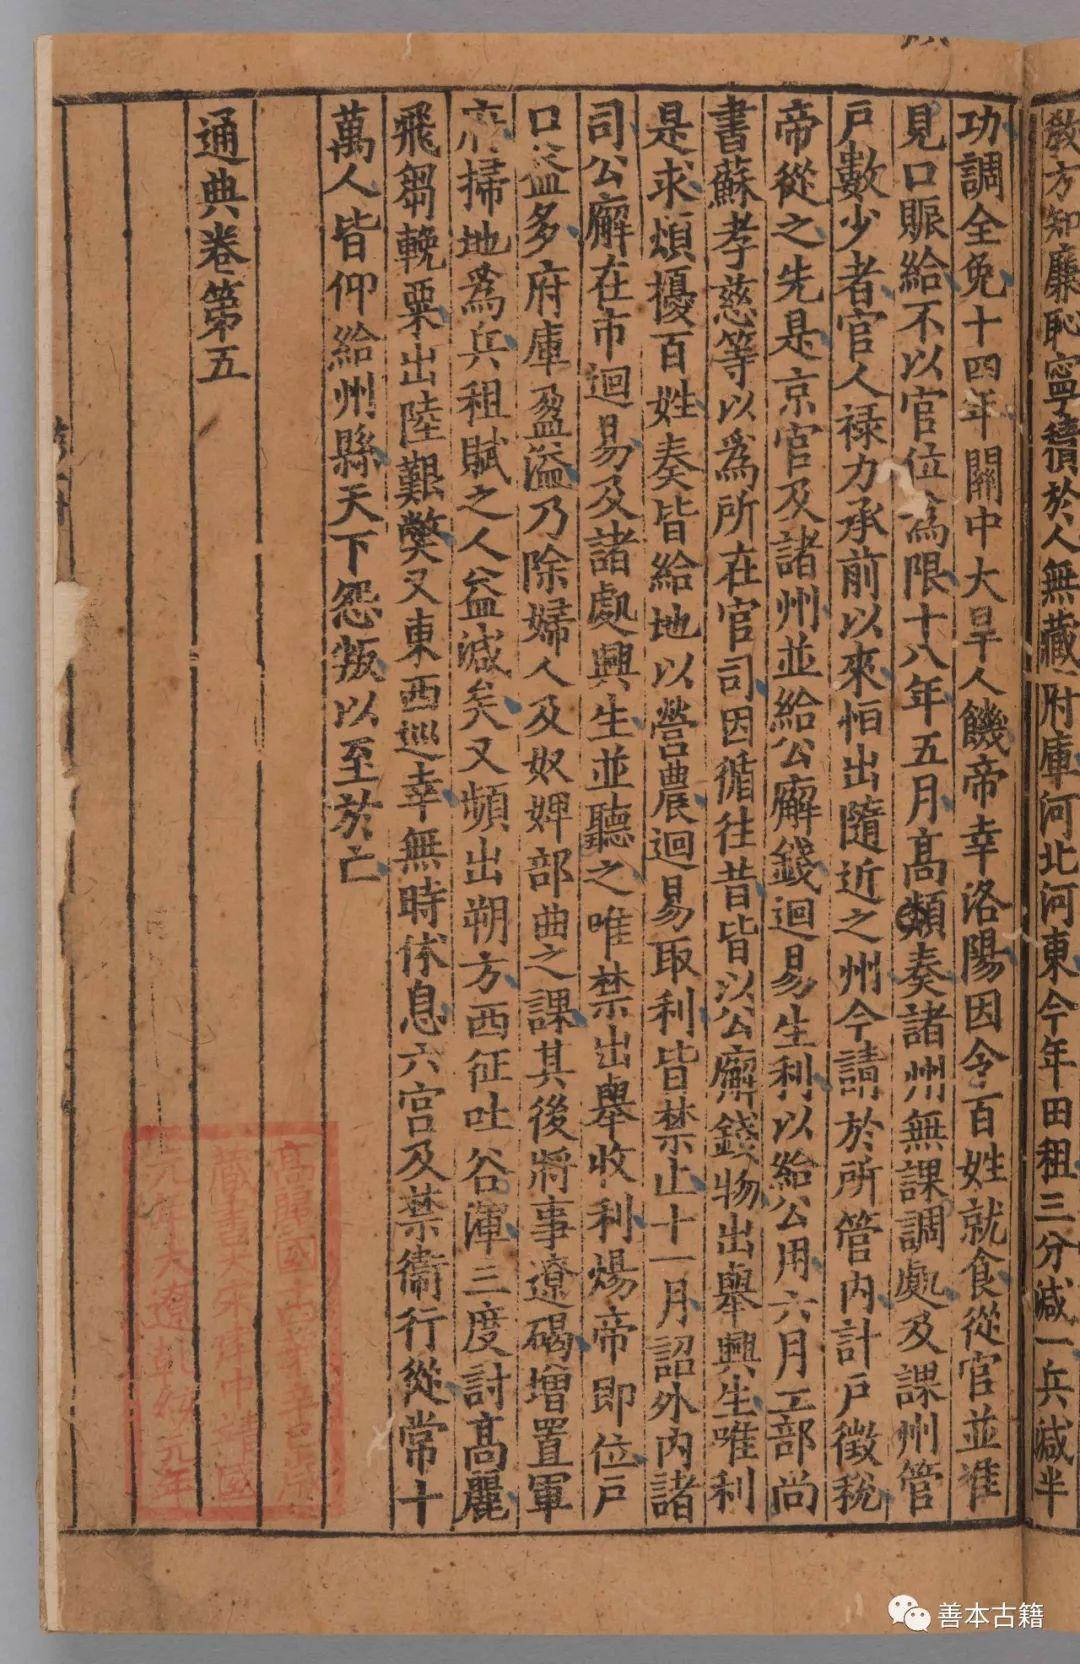 教方知廉恥寧積於人無藏府庫河北河東今年田租三分減一兵減半
功調全免十四年關中大旱人饑帝幸洛陽因令百姓就食從官並准
見口賑給不以官位為限十八年五月高熲奏諸州無課調處及課州管
戶數少者官人祿力承前以來恒出隨近之州今請於所管內計戶徵稅
帝從之先是京官及諸州並給公廨錢迴易生利以給公用六月工部尚
書蘇孝慈等以為所在官司因循往昔皆以公廨錢物出舉興生唯利
是求煩擾百姓奏皆給地以營農迴易取利皆禁止十一月詔外內諸
司公廨在市迴易及諸處興生並聽之唯禁出舉收利煬帝即位戶
口益多府庫盈溢乃除婦人及奴婢部曲之課其後將事遼碣增置軍
府掃地為兵租賦之人益減矣又頻出朔方西征吐谷渾三度討高麗
飛芻輓粟出陸艱弊又東西巡幸無時休息六宮及禁衛行從常十
萬人皆仰給州縣天下怨叛以至於亡
通典卷第五
高麗國十四葉辛巳歲
藏書大宋建中靖國
元年大遼乾統元年
善本古籍